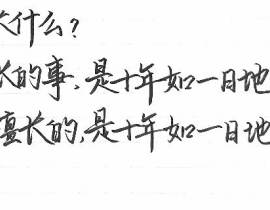 什么？
长的事，是十年如一日地
擅长的，是十年如一日地